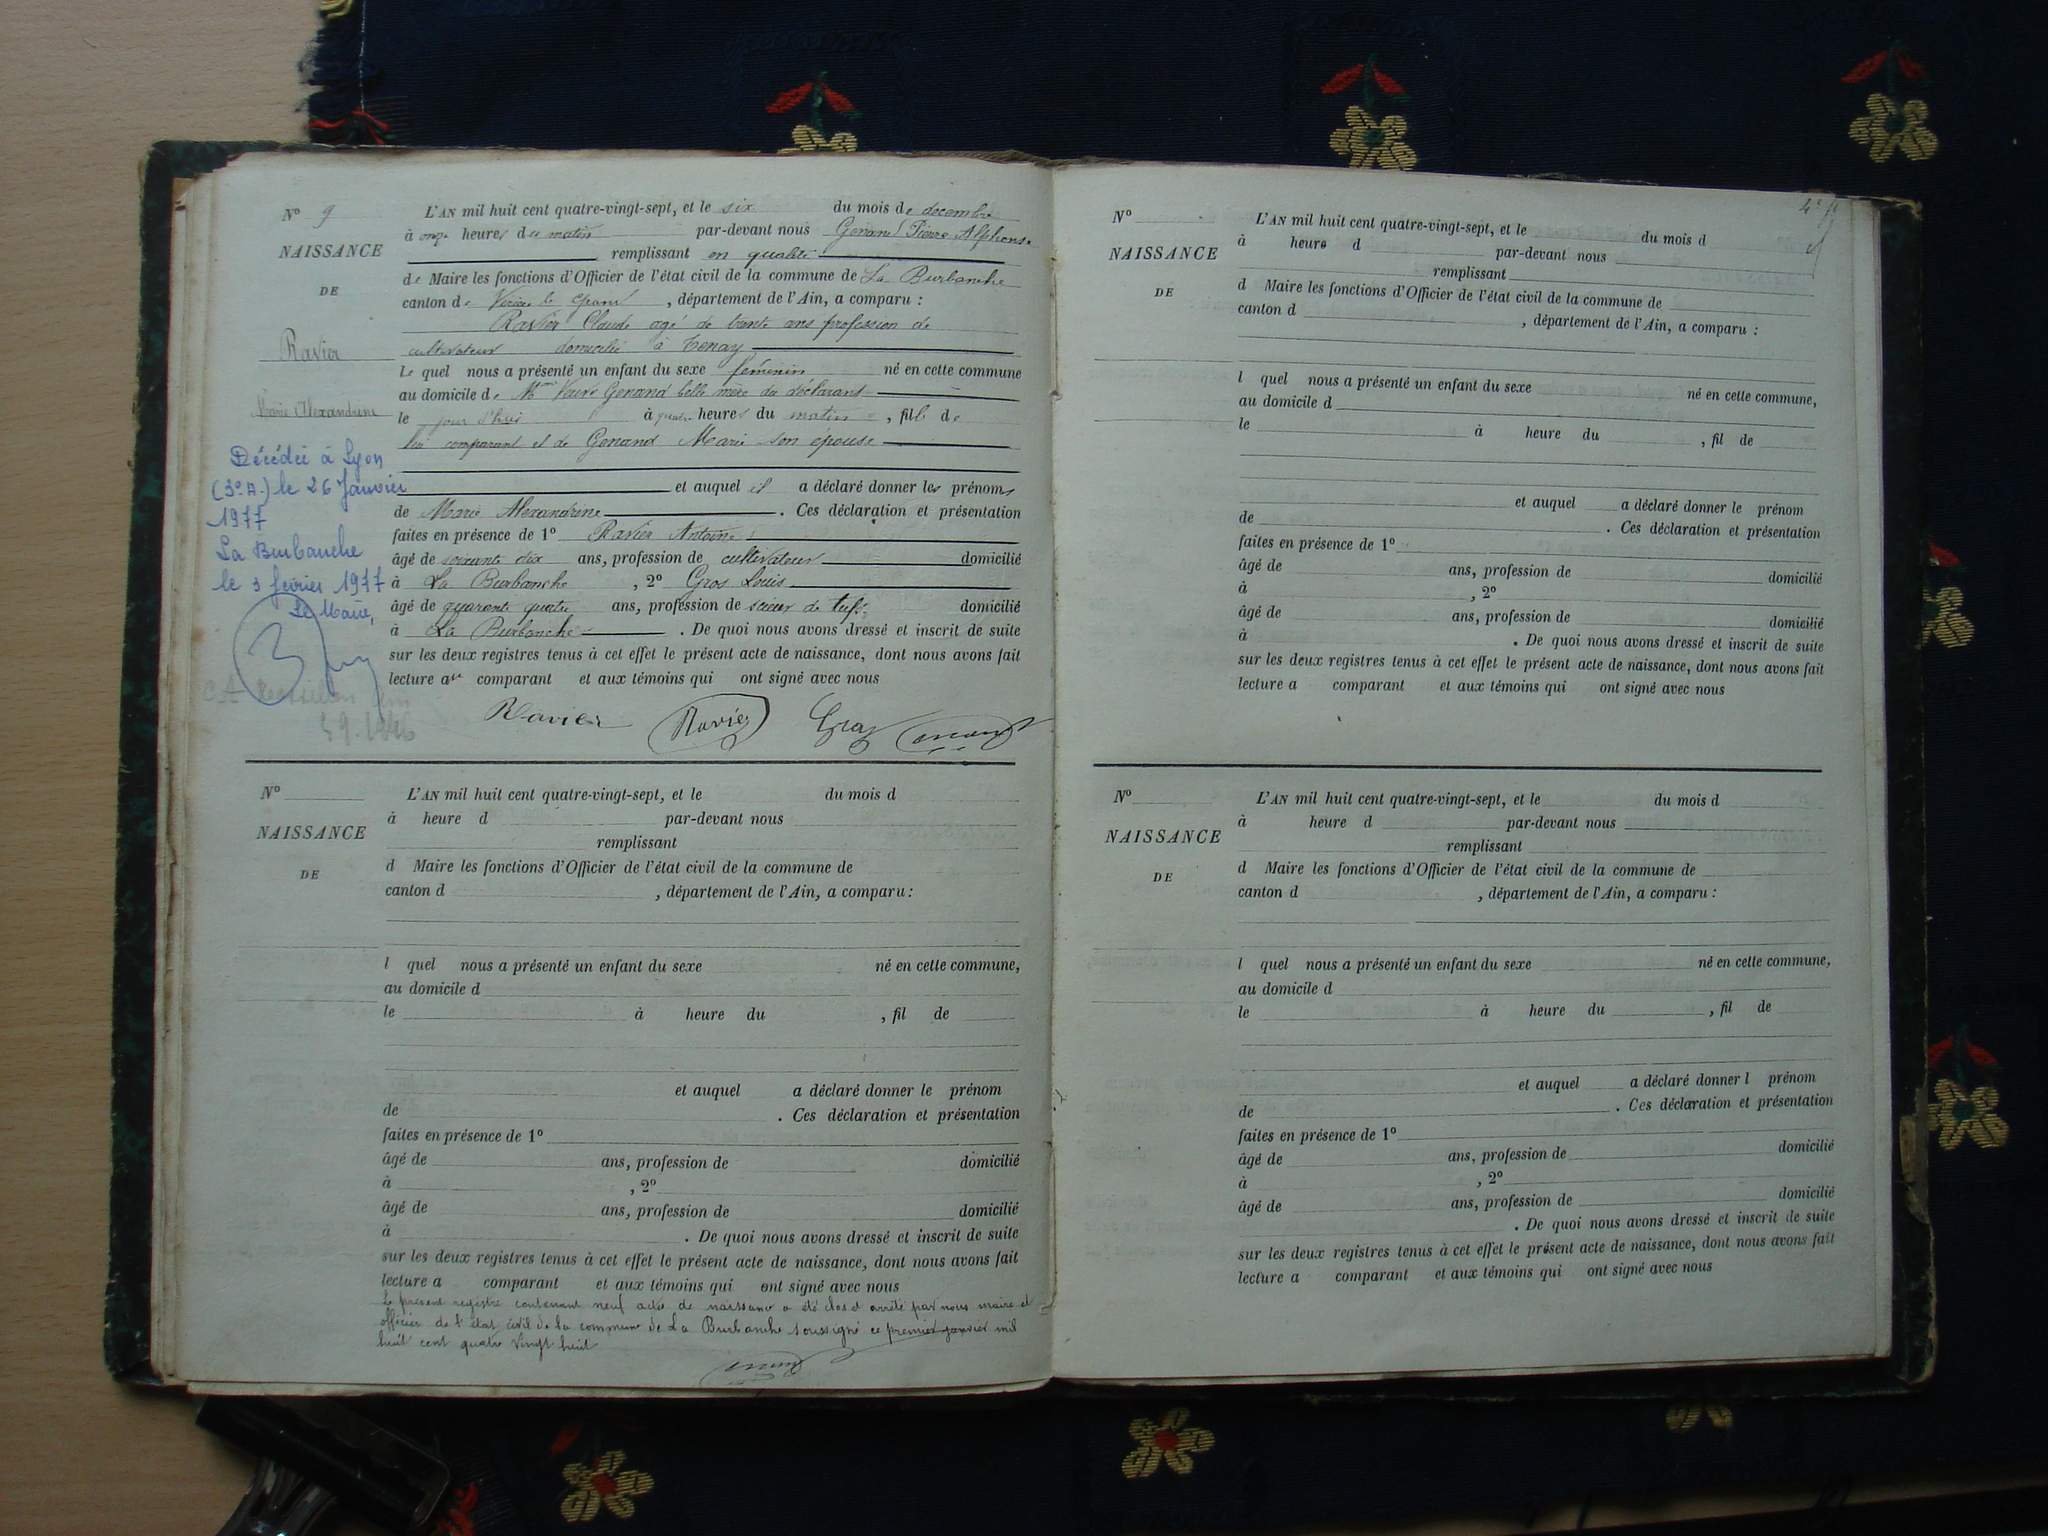 N° 9
NAISSANCE
DE
Ravier
Marie Alexandrine
Décédée à Lyon
(3e A.) le 26 Janvier
1977
La Burbanche
le 3 février 1977
Le Maire,
L'AN mil huit cent quatre-vingt-sept, et le six du mois de décembre
à onze heures du matin par-devant nous Genand Pierre Alphonse
remplissant en qualité
de Maire les fonctions d'Officier de l'état civil de la commune de La Burbanche
canton de Virieu le Grand, département de l'Ain, a comparu :
Ravier Claude agé de trente ans profession de
cultivateur domicilié à Tenay
Le quel nous a présenté un enfant du sexe féminin né en cette commune
au domicile de Mme Veuve Genand belle mère du déclarant
le jour d'hui à quatre heures du matin, fille de
lui comparant et de Genand Marie son épouse
et auquel il a déclaré donner les prénoms
de Marie Alexandrine. Ces déclaration et présentation
faites en présence de 1° Ravier Antoine
âgé de soixante dix ans, profession de cultivateur domicilié
à La Burbanche, 2° Gros Louis
âgé de quarante quatre ans, profession de scieur de tufs domicilié
à La Burbanche. De quoi nous avons dressé et inscrit de suite
sur les deux registres tenus à cet effet le présent acte de naissance, dont nous avons fait
lecture au comparant et aux témoins qui ont signé avec nous
Ravier Ravier Gros
N°
NAISSANCE
DE
L'AN mil huit cent quatre-vingt-sept, et le du mois d
à heure d par-devant nous
remplissant
d Maire les fonctions d'Officier de l'état civil de la commune de
canton d , département de l'Ain, a comparu :
l quel nous a présenté un enfant du sexe né en cette commune,
au domicile d
le à heure du , fil de
et auquel a déclaré donner le prénom
de . Ces déclaration et présentation
faites en présence de 1°
âgé de ans, profession de domicilié
à , 2°
âgé de ans, profession de domicilié
à . De quoi nous avons dressé et inscrit de suite
sur les deux registres tenus à cet effet le présent acte de naissance, dont nous avons fait
lecture a comparant et aux témoins qui ont signé avec nous
Le présent registre contenant neuf actes de naissance a été clos et arrêté par nous maire et
officier de l'état civil de la commune de La Burbanche soussigné ce premier janvier mil
huit cent quatre vingt huit
N°
NAISSANCE
DE
L'AN mil huit cent quatre-vingt-sept, et le du mois d
à heure d par-devant nous
remplissant
d Maire les fonctions d'Officier de l'état civil de la commune de
canton d , département de l'Ain, a comparu :
l quel nous a présenté un enfant du sexe né en cette commune,
au domicile d
le à heure du , fil de
et auquel a déclaré donner le prénom
de . Ces déclaration et présentation
faites en présence de 1°
âgé de ans, profession de domicilié
à , 2°
âgé de ans, profession de domicilié
à . De quoi nous avons dressé et inscrit de suite
sur les deux registres tenus à cet effet le présent acte de naissance, dont nous avons fait
lecture a comparant et aux témoins qui ont signé avec nous
N°
NAISSANCE
DE
L'AN mil huit cent quatre-vingt-sept, et le du mois d
à heure d par-devant nous
remplissant
d Maire les fonctions d'Officier de l'état civil de la commune de
canton d , département de l'Ain, a comparu :
l quel nous a présenté un enfant du sexe né en cette commune,
au domicile d
le à heure du , fil de
et auquel a déclaré donner l prénom
de . Ces déclaration et présentation
faites en présence de 1°
âgé de ans, profession de domicilié
à , 2°
âgé de ans, profession de domicilié
. De quoi nous avons dressé et inscrit de suite
sur les deux registres tenus à cet effet le présent acte de naissance, dont nous avons fait
lecture a comparant et aux témoins qui ont signé avec nous